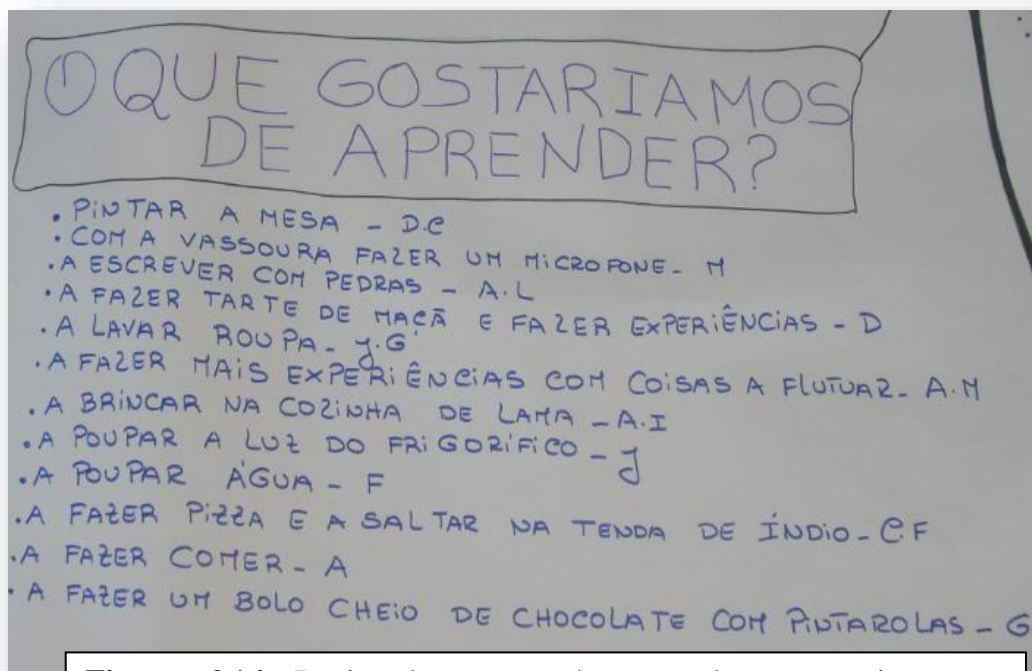 O QUE GOSTARIAMOS
DE APRENDER?
. PINTAR A MESA - D.C
. COM A VASSOURA FAZER UM MICROFONE - M
. A ESCREVER COM PEDRAS - A.L
. A FAZER TARTE DE MAÇÃ E FAZER EXPERIÊNCIAS - D
. A LAVAR ROUPA - J.G
. A FAZER MAIS EXPERIÊNCIAS COM COISAS A FLUTUAR - A.M
. A BRINCAR NA COZINHA DE LAMA - A.I
. A POUPAR A LUZ DO FRIGORÍFICO - J
. A POUPAR ÁGUA - F
. A FAZER PIZZA E A SALTAR NA TENDA DE ÍNDIO - C.F
. A FAZER COMER - A
. A FAZER UM BOLO CHEIO DE CHOCOLATE COM PINTAROLAS - G